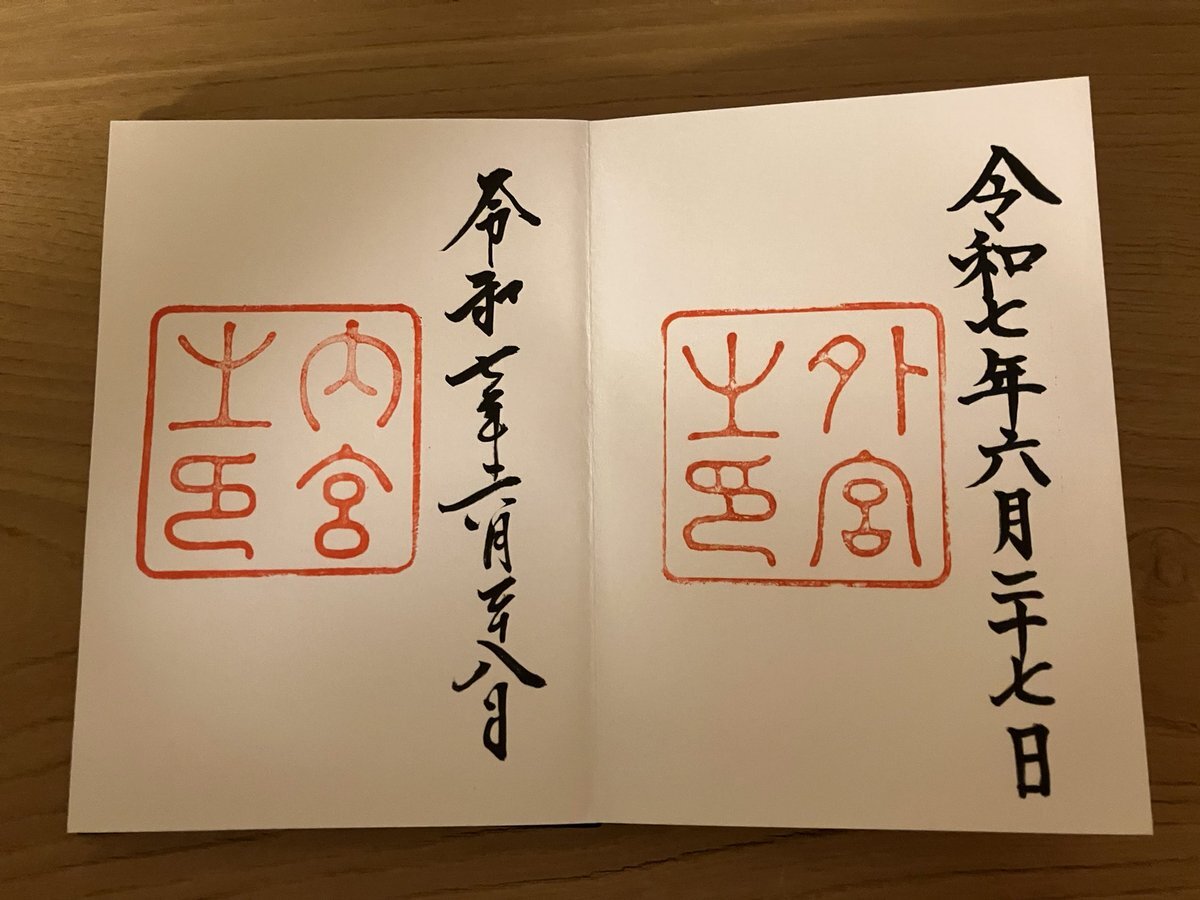 令和七年六月二十七日
外宮之印
令和七年六月二十八日
内宮之印